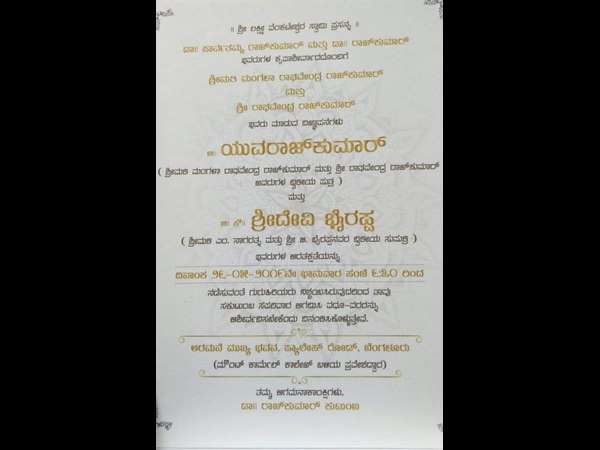 ॥ ಶ್ರೀ ಲಕ್ಷ್ಮೀ ವೆಂಕಟೇಶ್ವರ ಸ್ವಾಮಿ ಪ್ರಸನ್ನ ॥
ಡಾ॥ ಪಾರ್ವತಮ್ಮ ರಾಜ್‌ಕುಮಾರ್ ಮತ್ತು ಡಾ॥ ರಾಜ್‌ಕುಮಾರ್
ಇವರುಗಳ ಕೃಪಾಶೀರ್ವಾದದೊಂದಿಗೆ
ಶ್ರೀಮತಿ ಮಂಗಳಾ ರಾಘವೇಂದ್ರ ರಾಜ್‌ಕುಮಾರ್
ಮತ್ತು
ಶ್ರೀ ರಾಘವೇಂದ್ರ ರಾಜ್‌ಕುಮಾರ್
ಇವರು ಮಾಡುವ ವಿಜ್ಞಾಪನೆಗಳು
ಚಿ॥ ಯುವರಾಜ್‌ಕುಮಾರ್
( ಶ್ರೀಮತಿ ಮಂಗಳಾ ರಾಘವೇಂದ್ರ ರಾಜ್‌ಕುಮಾರ್ ಮತ್ತು ಶ್ರೀ ರಾಘವೇಂದ್ರ ರಾಜ್‌ಕುಮಾರ್
ಅವರುಗಳ ದ್ವಿತೀಯ ಪುತ್ರ )
ಮತ್ತು
ಚಿ॥ ಸೌ॥ ಶ್ರೀದೇವಿ ಭೈರಪ್ಪ
( ಶ್ರೀಮತಿ ಎಂ. ನಾಗರತ್ನ ಮತ್ತು ಶ್ರೀ ಜಿ. ಭೈರಪ್ಪನವರ ದ್ವಿತೀಯ ಸುಪುತ್ರಿ )
ಇವರುಗಳ ಆರತಕ್ಷತೆಯನ್ನು
ದಿನಾಂಕ ೨೬-೦೫-೨೦೧೯ನೇ ಭಾನುವಾರ ಸಂಜೆ ೬:೩೦ ರಿಂದ
ನಡೆಸುವಂತೆ ಗುರುಹಿರಿಯರು ನಿಶ್ಚಯಿಸಿರುವುದರಿಂದ ತಾವು
ಸಕುಟುಂಬ ಸಪರಿವಾರ ಆಗಮಿಸಿ ವಧೂ-ವರರನ್ನು
ಆಶೀರ್ವದಿಸಬೇಕೆಂದು ವಿನಂತಿಸಿಕೊಳ್ಳುತ್ತೇವೆ.
ಅರಮನೆ ಮುಖ್ಯ ಭವನ, ಪ್ಯಾಲೇಸ್ ರೋಡ್, ಬೆಂಗಳೂರು
(ಮೌಂಟ್ ಕಾರ್ಮೆಲ್ ಕಾಲೇಜ್ ಬಳಿಯ ಪ್ರವೇಶದ್ವಾರ)
ತಮ್ಮ ಆಗಮನಾಕಾಂಕ್ಷಿಗಳು,
ಡಾ॥ ರಾಜ್‌ಕುಮಾರ್ ಕುಟುಂಬ